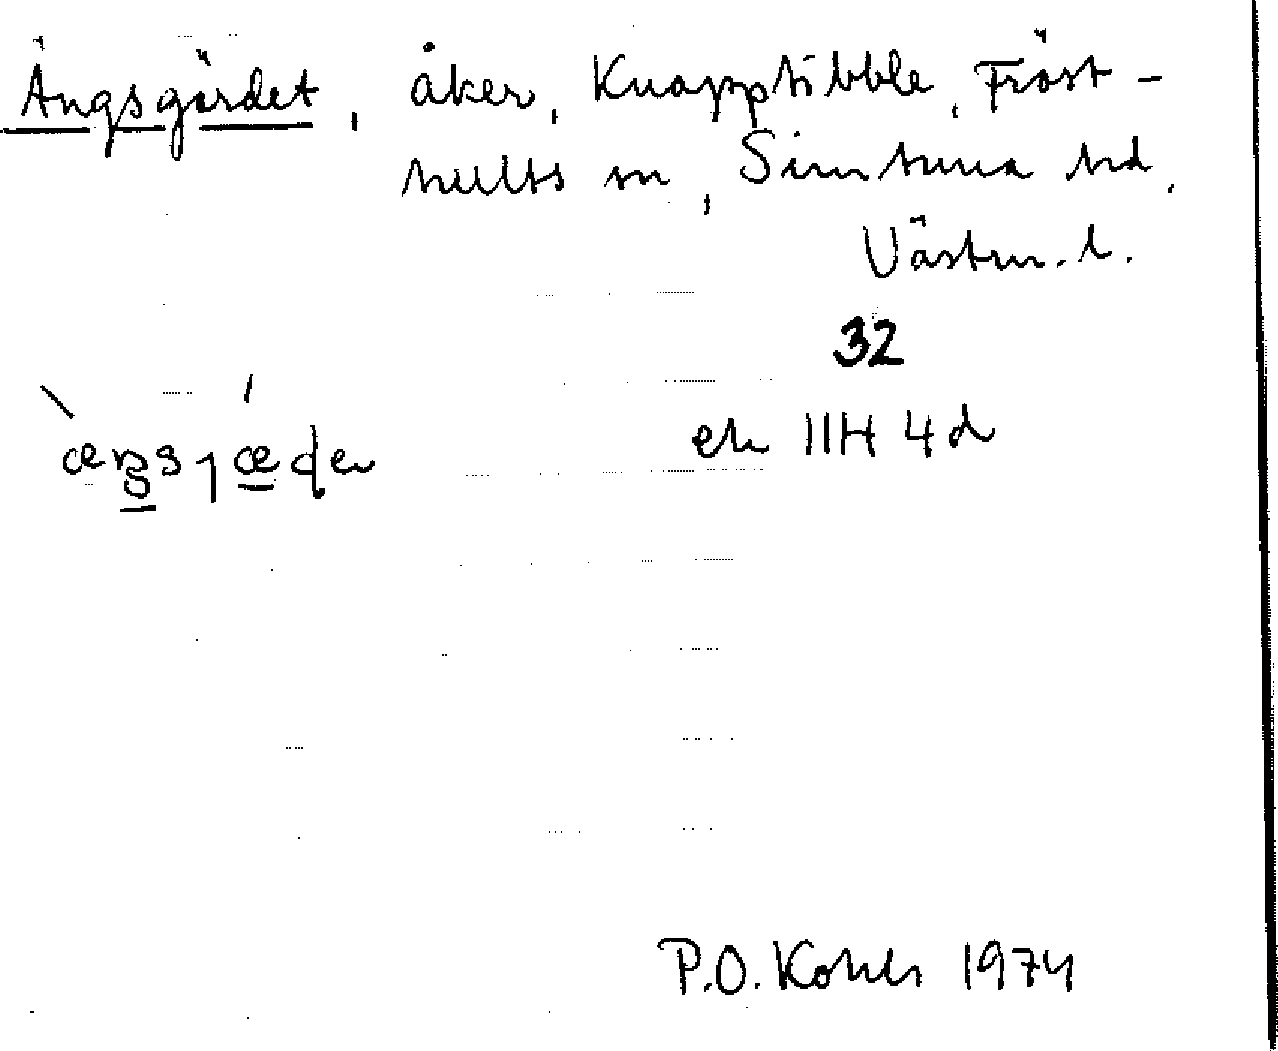 Ängsgärdet, åker, Knapptibble, Fröst-
hults sn, Simtuna hd,
Västm. l.
32
ek 11H 4d
P.O. Kohls 1974